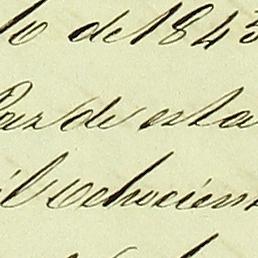 lo de 1843
Paz de esta
il Ochocient